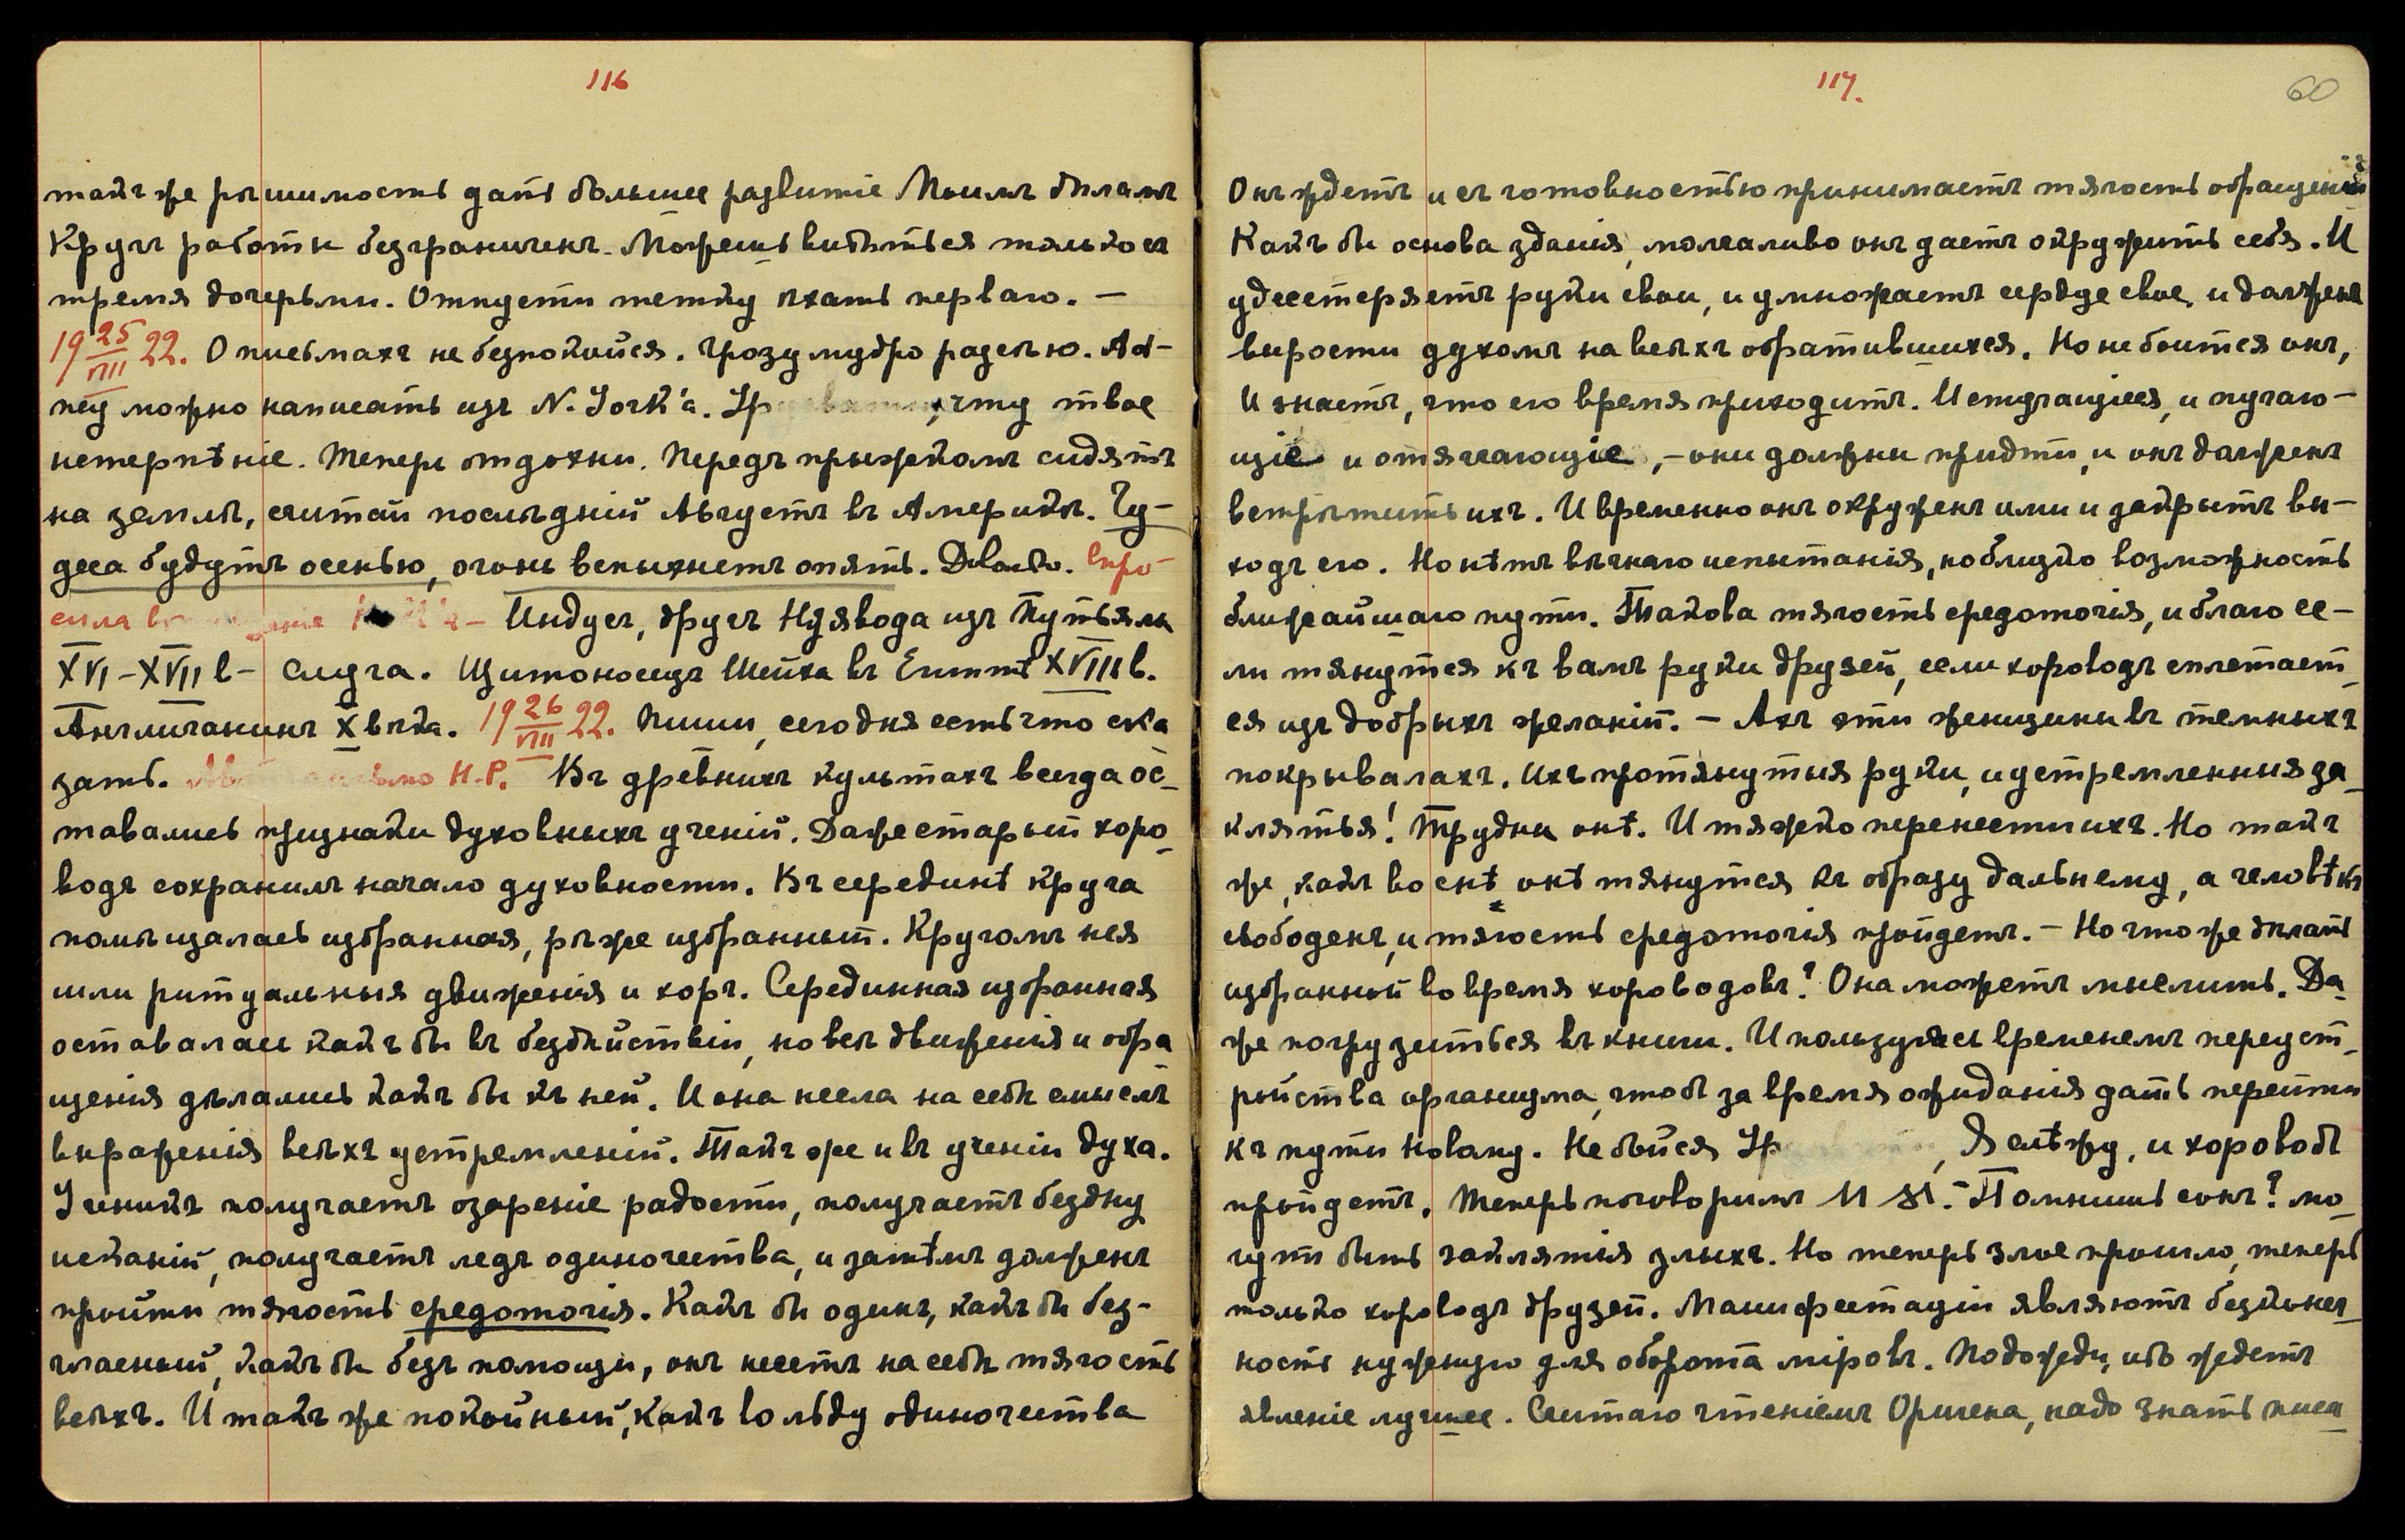 116
такъ же рѣшимость дать большее развитіе Моимъ дѣламъ
Кругъ работы безграниченъ. Можешь видѣться только съ
тремя дочерьми. Отпусти тетку ѣхать перваго. —
19 25/VIII 22. О письмахъ не безпокойся. Грозу мудро разсѣю. Ad-
ney можно написать изъ N. York'а. чту твое
нетерпѣніе. Теперь отдохни. Передъ прыжкомъ сидятъ
на землѣ, считай послѣдній Августъ въ Америкѣ. Чу-
деса будутъ осенью, огонь вспыхнетъ опять. Dovolno. Спро-
сила — Индусъ, другъ изъ
XVI–XVII в – слуга. Щитоносецъ Шейха въ Египтѣ XVIII в.
Англичанинъ X вѣка. 19 26/VIII 22. Пиши, сегодня есть что ска
зать. письмо Н.Р. Въ древнихъ культахъ всегда ос-
тавались признаки духовныхъ ученій. Даже старый хоро-
водъ сохранилъ начало духовности. Въ серединѣ круга
помѣщалась избранная, рѣже избранный. Кругомъ нея
шли ритуальныя движенія и хоръ. Серединная избранная
оставалась какъ бы въ бездѣйствіи, но всѣ движенія и обра
щенія дѣлались какъ бы къ ней. И она несла на себѣ смыслъ
выраженія всѣхъ устремленій. Такъ же и въ ученіи духа.
Ученикъ получаетъ озареніе радости, получаетъ бездну
исканій, получаетъ ледъ одиночества, и затѣмъ долженъ
пройти тягость средоточія. Какъ бы одинъ, какъ бы без-
гласный, какъ бы безъ помощи, онъ несетъ на себѣ тягость
всѣхъ. И такъ же покойный, какъ во льду одиночества
117.
60
Онъ ждетъ и съ готовностью принимаетъ тягость обращеній
Какъ бы основа зданія, молчаливо онъ даетъ окружить себя. И
удесетеряетъ руки свои, и умножаетъ сердце свое, и долженъ
вырости духомъ на всѣхъ обратившихся. Но не боится онъ,
И знаетъ, что его время приходитъ. И стучащіеся, и пугаю-
щіе и отягчающіе, — они должны придти, и онъ долженъ
встрѣтить ихъ. И временно онъ окруженъ ими и закрытъ вы-
ходъ его. Но нѣтъ вѣчнаго испытанія, но близко возможность
ближайшаго пути. Такова тягость средоточія, и благо ес-
ли тянутся къ вамъ руки друзей, если хороводъ сплетает-
ся изъ добрыхъ желаній. — Ахъ эти женщины въ темныхъ
покрывалахъ. Ихъ протянутыя руки, и устремленныя за-
клятья! Трудны онѣ. И тяжко перенести ихъ. Но такъ
же, какъ во снѣ онѣ тянутся къ образу дальнему, а человѣкъ
свободенъ, и тягость средоточія пройдетъ. — Но что же дѣлать
избранной во время хороводовъ? Она можетъ мыслить. Да-
же погрузиться въ книги. И пользуясь временемъ переуст-
ройства организма, чтобъ за время ожиданія дать перейти
къ пути новому. Не бойся , Я слѣжу, и хороводъ
пройдетъ. Теперь поговоримъ — Помнишь сонъ? мо-
гутъ быть заклятія злыхъ. Но теперь злое прошло, теперь
только хороводъ друзей. Манифестаціи являютъ безконеч-
ность нужную для оборота міровъ. Подожди, ибо ждетъ
явленіе лучшее. Считаю чтеніемъ Оригена, надо знать писа-